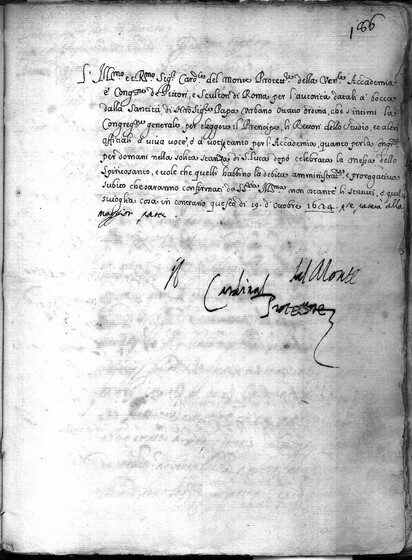 186
L'Ill.mo et R.mo Sig.r Card.le del Monte Protett.re della Ven.le Accademia
e Congr.ne de Pittori, e Scultori di Roma per l'autorità datali à bocca
dalla Santità di N.ro Sig.re Papa Urbano Ottavo ordina, che s'intimi la
Congreg.ne generale per eleggere il Prencipe, li Rettori dello Studio, et altri
offitiali à viva voce, ò à voti tanto per l'Accademia, quanto per la Congr.ne
per domani nella solita stanza di S. Luca dopò celebrata la messa dello
Spirito santo, e vole che quelli habbino la debita amministrat.ne e prerogativa
subito che saranno confirmati da S.S. Ill.ma non ostante li statuti, ò qual
sivoglia cosa in contrario questo dì 19 d'ottobre 1624. alla
maggior parte.
il Cardinal del Monte
Protettore